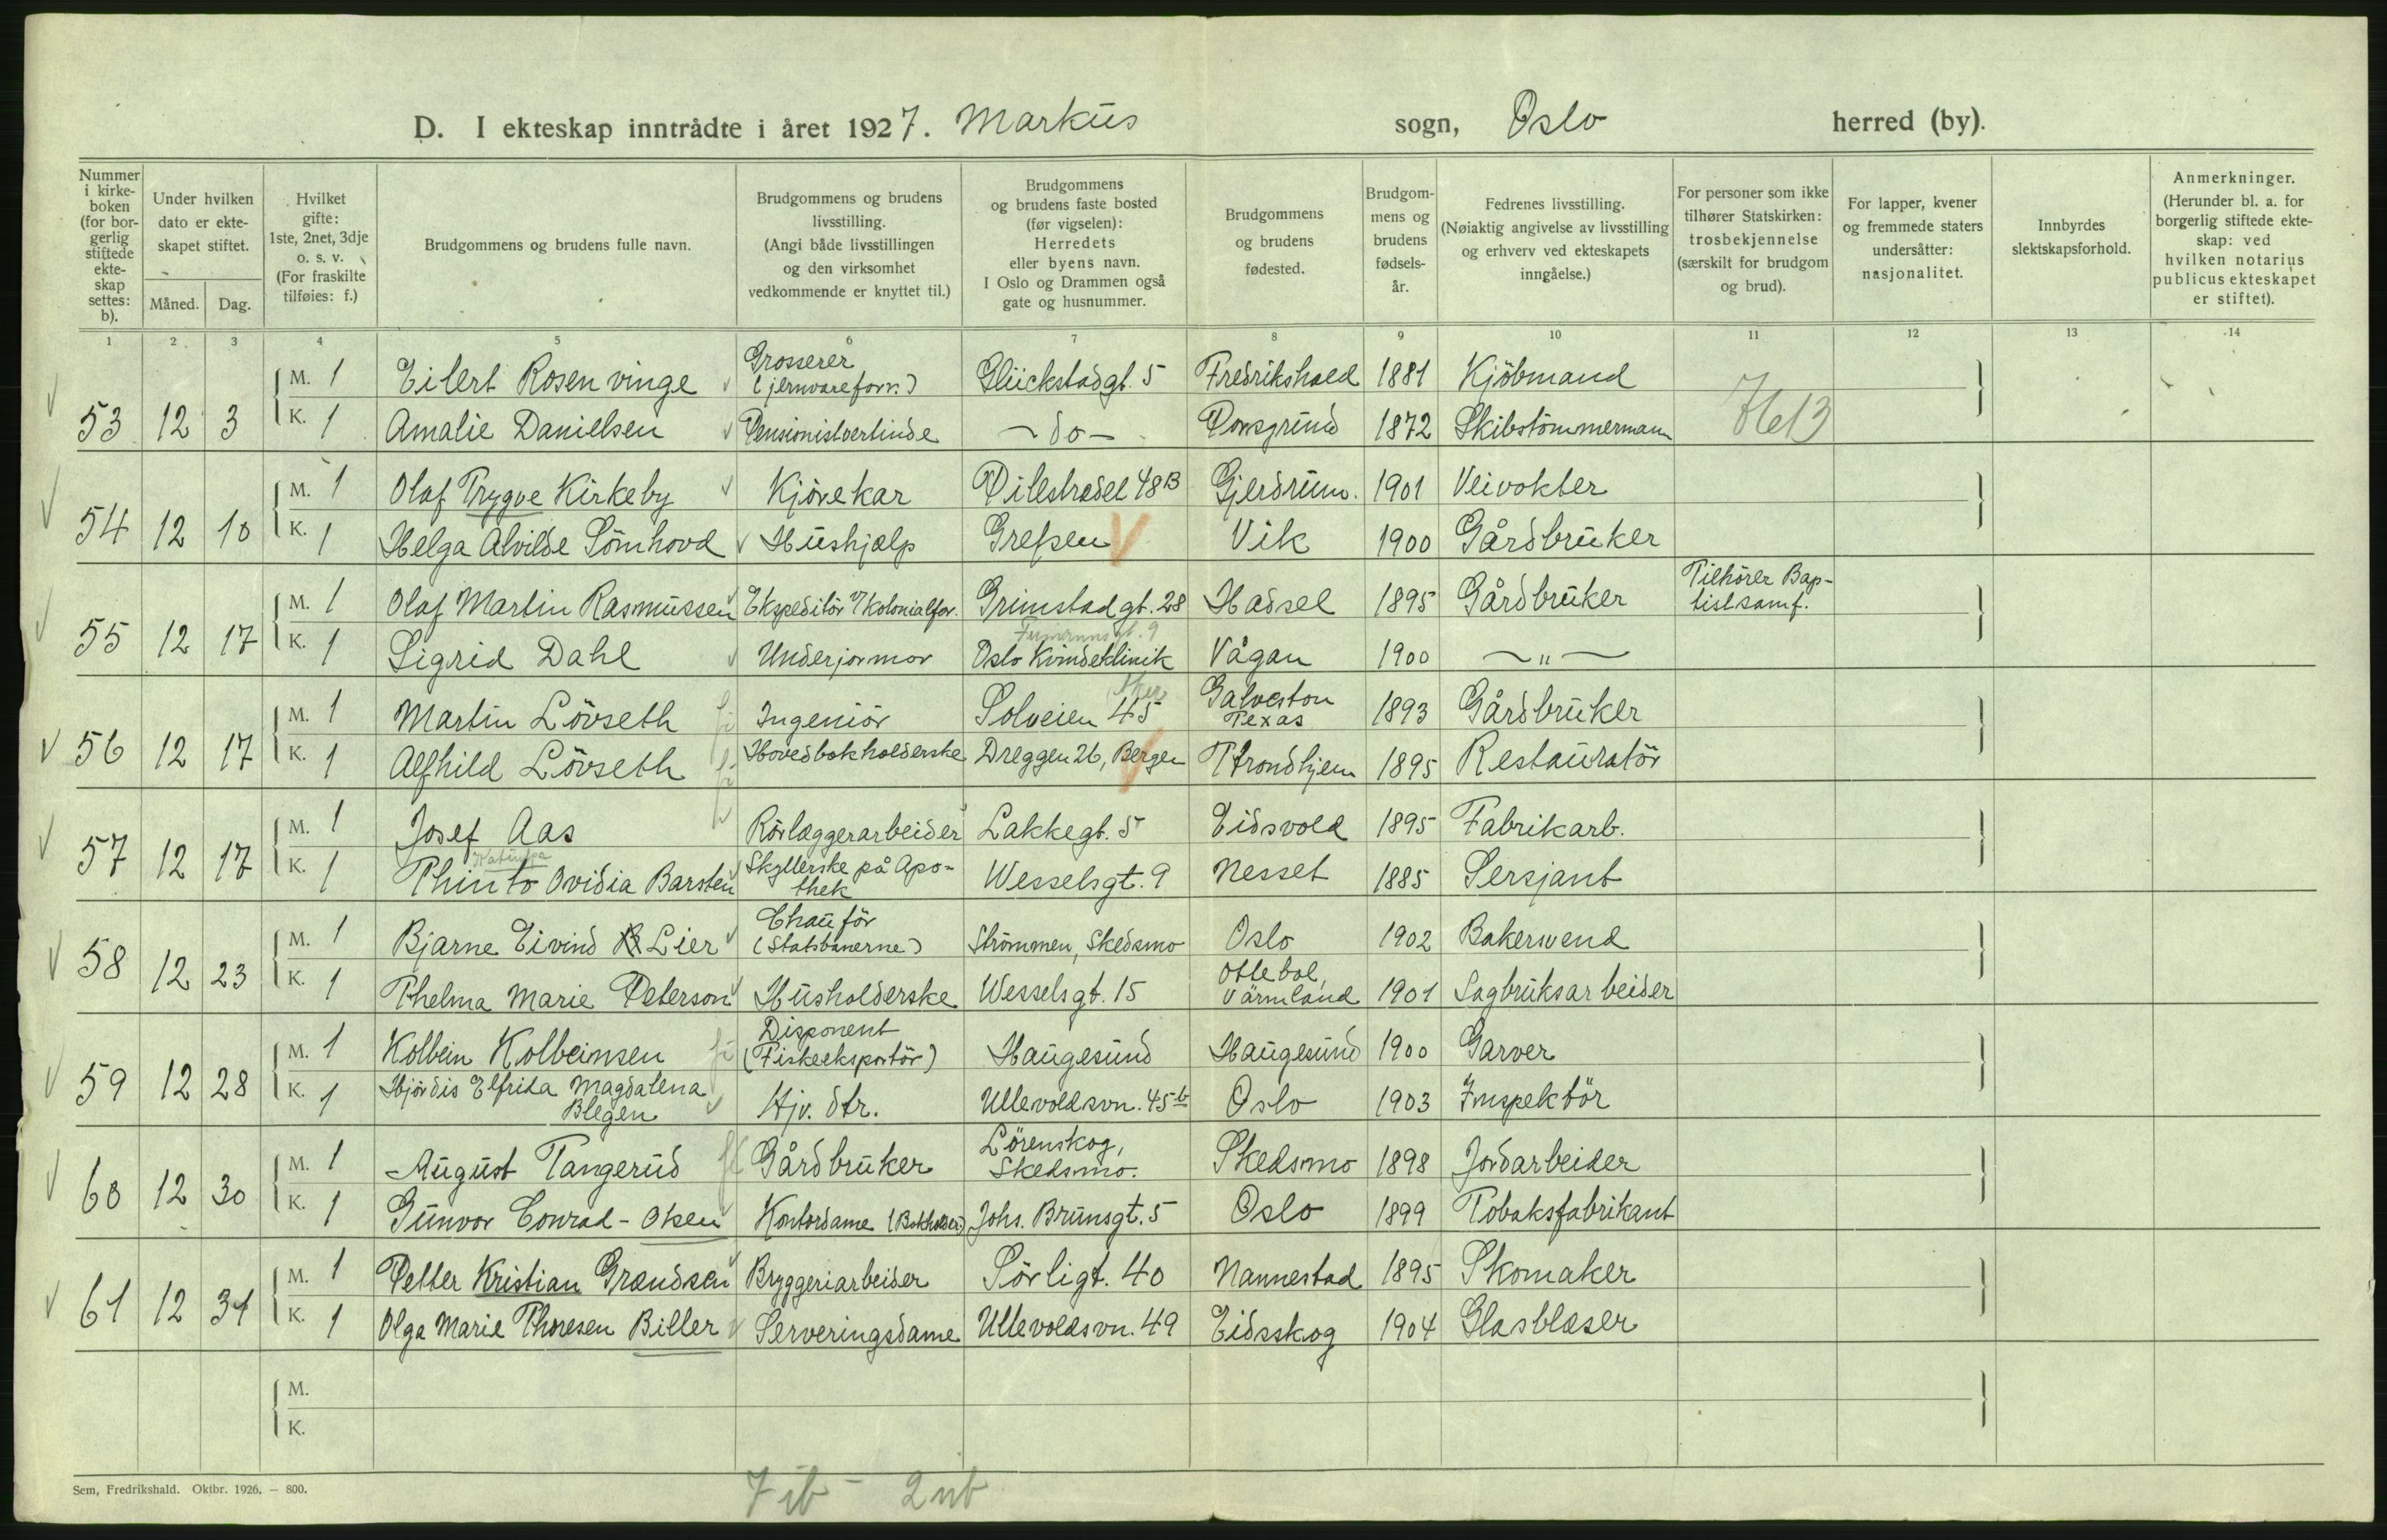 D. I ekteskap inntrådte i året 1927. Markus sogn, Oslo herred (by).
Nummer i kirke-boken (for bor-gerlig stiftede ekte-skap settes: b).
Under hvilken dato er ekte-skapet stiftet.
Måned. Dag.
Hvilket gifte: 1ste, 2net, 3dje o. s. v. (For fraskilte tilføies: f.)
Brudgommens og brudens fulle navn.
Brudgommens og brudens livsstilling. (Angi både livsstillingen og den virksomhet vedkommende er knyttet til.)
Brudgommens og brudens faste bosted (før vigselen): Herredets eller byens navn. I Oslo og Drammen også gate og husnummer.
Brudgommens og brudens fødested.
Brudgom-mens og brudens fødsels-år.
Fedrenes livsstilling. (Nøiaktig angivelse av livsstilling og erhverv ved ekteskapets inngåelse.)
For personer som ikke tilhører Statskirken: trosbekjennelse (særskilt for brudgom og brud).
For lapper, kvener og fremmede staters undersåtter: nasjonalitet.
Innbyrdes slektskapsforhold.
Anmerkninger. (Herunder bl. a. for borgerlig stiftede ekte-skap: ved hvilken notarius publicus ekteskapet er stiftet).
1 2 3 4 5 6 7 8 9 10 11 12 13 14
M. 1 Eilert Rosenvinge Grosserer (jernvareforr.) Glückstadgt. 5 Fredrikshald 1881 Kjöbmand
53 12 3 K. 1 Amalie Danielsen Pensionistvertinde - do - Porsgrund 1872 Skibstömmermann
M. 1 Olaf Trygve Kirkeby Kjörekar Pilestredet 48B Gjerdrum. 1901 Veivokter
54 12 10 K. 1 Helga Alvilde Sömhovd Hushjælp Grefsen Vik 1900 Gårdbruker
M. 1 Olaf Martin Rasmussen Ekspeditör i kolonialfor. Grimstadgt. 28 Hadsel 1895 Gårdbruker Tilhörer Bap-tistsamf.
55 12 17 K. 1 Sigrid Dahl Underjormor Oslo Kvindeklinik Vågan 1900 - " -
M. 1 Martin Lövseth Ingeniör Solveien 45 Galveston Texas 1893 Gårdbruker
56 12 17 K. 1 Alfhild Lövseth Hovedbokholderske Dreggen 26, Bergen Trondhjem 1895 Restauratör
M. 1 Josef Aas Rörlæggerarbeider Lakkegt. 5 Eidsvold 1895 Fabrikarb.
57 12 17 K. 1 Thinto Ovidia Barsten Skyllerske på Apo-thek Wesselsgt. 9 Nesset 1885 Sersjant
M. 1 Bjarne Eivind Lier Chauför (Statsbanerne) Strömmen, Skedsmo Oslo 1902 Bakersvend
58 12 23 K. 1 Thelma Marie Peterson Husholderske Wesselsgt. 15 Ottebol, Värmland 1901 Sagbruksarbeider
M. 1 Kolbein Kolbeinsen Disponent (Fiskeeksportör) Haugesund Haugesund 1900 Garver
59 12 28 K. 1 Hjördis Elfrida Magdalena Blegen Hjv. dtr. Ullevoldsvn. 45b Oslo 1903 Inspektör
M. 1 August Tangerud Gårdbruker Lörenskog, Skedsmo. Skedsmo 1898 Jordarbeider
60 12 30 K. 1 Gunvor Conrad-Olsen Kontordame (Bokholder) Johs. Brunsgt. 5 Oslo 1899 Tobaksfabrikant
M. 1 Petter Kristian Grændsen Bryggeriarbeider Sörligt. 40 Nannestad 1895 Skomaker
61 12 31 K. 1 Olga Marie Thoresen Biller Serveringsdame Ullevoldsvn. 49 Eidsskog 1904 Glasblæser
M.
K.
Sem, Fredrikshald. Oktbr. 1926. — 800.
7 ib - 2 ub